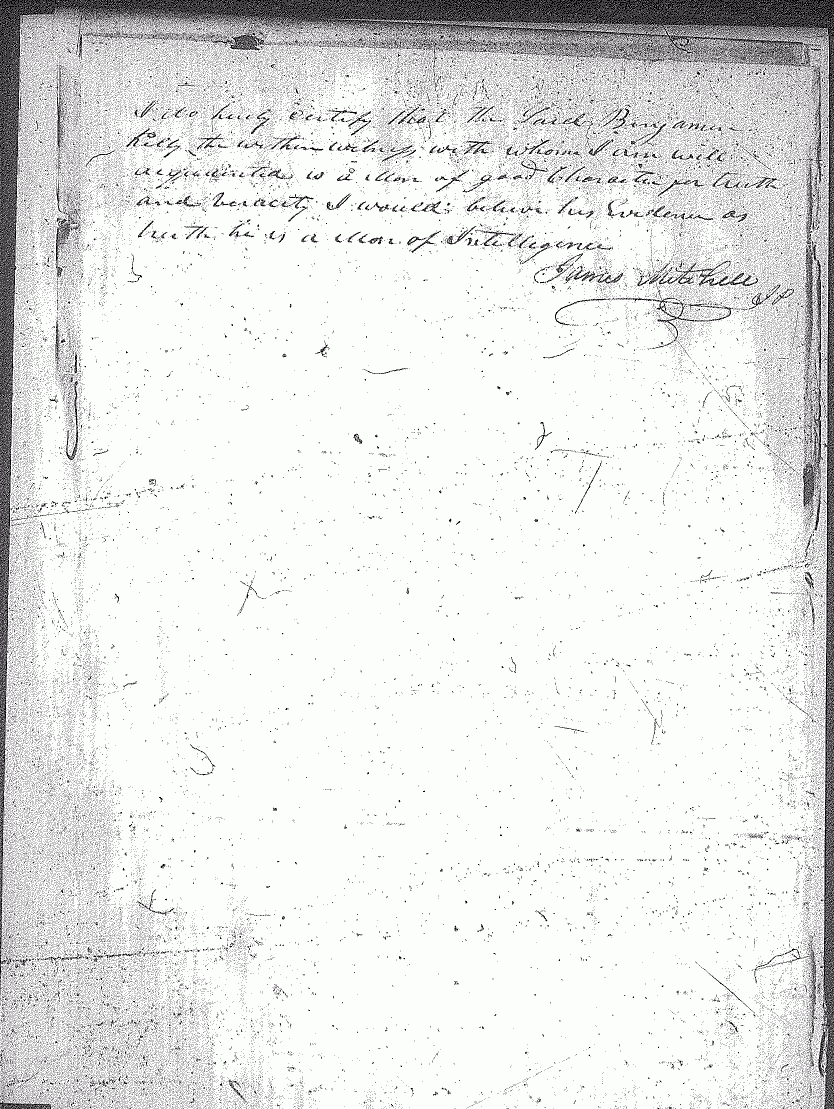 I do hereby Certify that the Said Benjamin
the within witness with whom I am well
acquainted is a Man of good Character for truth
and Veracity I would believe his Evidence as
truth he is a Man of Intelligence
James Mitchell JP